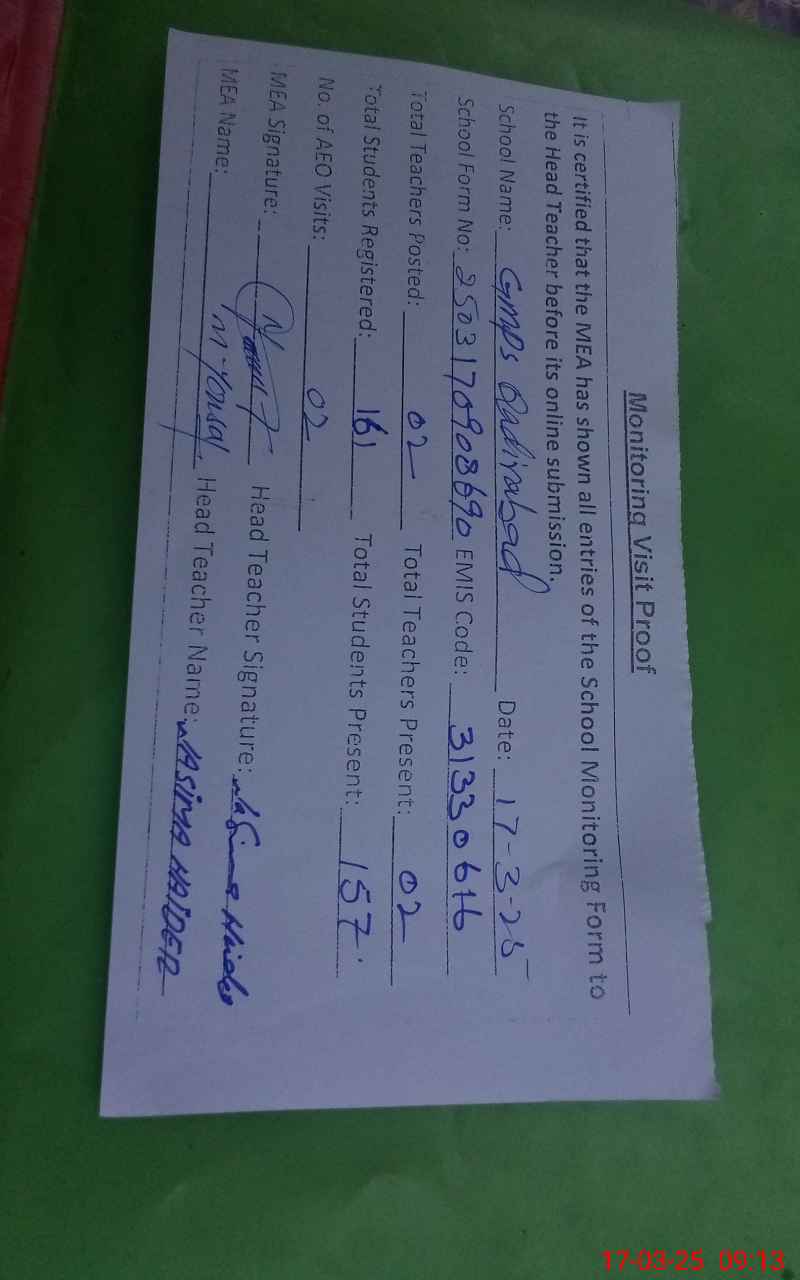 Monitoring Visit Proof
It is certified that the MEA has shown all entries of the School Monitoring Form to
the Head Teacher before its online submission.
School Name: GMPS Qadirabad Date: 17-3-25
School Form No: 2503170908690 EMIS Code: 31330616
Total Teachers Posted: 02 Total Teachers Present: 02
Total Students Registered: 161 Total Students Present: 157
No. of AEO Visits: 02
MEA Signature: Head Teacher Signature:
MEA Name: M-Yousaf Head Teacher Name: HAIDER
17-03-25 09:13